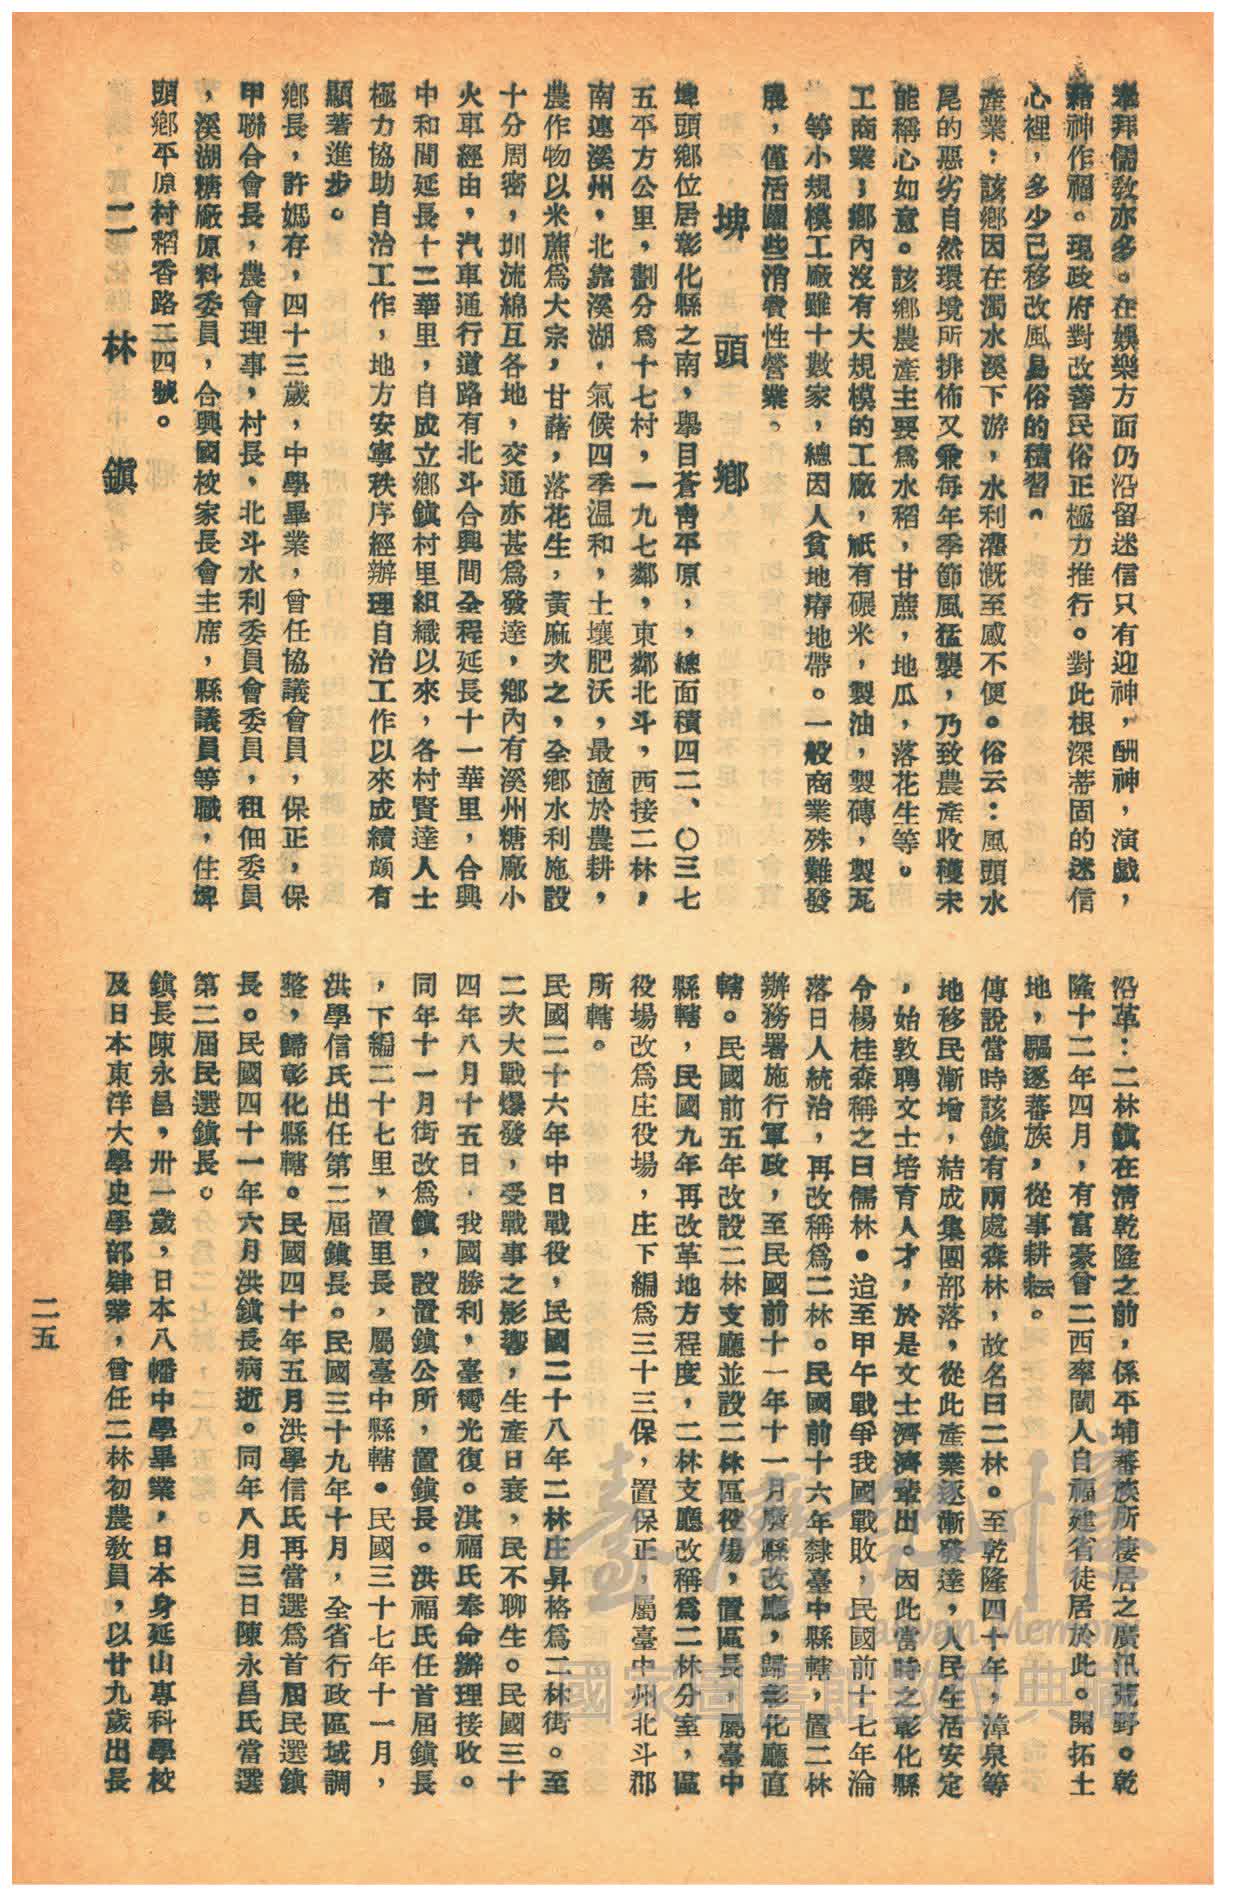 奉拜儒敎亦多。在娛樂方面仍沿留迷信只有迎神，酬神，演戯，
藉神作福。現政府對改善民俗正極力推行。對此根深蒂固的迷信
心裡，多少已移改風易俗的積習。
產業：該鄉因在濁水溪下游，水利灌漑至感不便。俗云：風頭水
尾的惡劣自然環境所排佈又兼每年季節風猛襲，乃致農產收穫未
能稱心如意。該鄉農產主要爲水稻，甘蔗，地瓜，落花生等。
工商業；鄉內沒有大規模的工廠，祇有碾米，製油，製磚，製瓦
，等小規模工廠雖十數家，總因人貧地瘠地帶。一般商業殊難發
展，僅活躍些消費性營業。
埤頭鄉
埤頭鄉位居彰化縣之南，舉目蒼靑平原，，總面積四二、〇三七
五平方公里，劃分爲十七村，一九七鄰，東鄰北斗，西接二林，
南連溪州，北靠溪湖，氣候四季溫和，土壤肥沃，最適於農耕，
農作物以米蔗爲大宗，甘藷，落花生，黃麻次之，全鄉水利施設
十分周密，圳流綿互各地，交通亦甚爲發達，鄉內有溪州糖廠小
火車經由，汽車通行道路有北斗合興間全程延長十一華里，合興
中和間延長十二華里，自成立鄉鎮村里組織以來，各村賢達人士
極力協助自治工作，地方安寧秩序經辦理自治工作以來成績頗有
顯著進步。
鄉長，許媽存，四十三歲，中學畢業，曾任協議會員，保正，保
甲聯合會長，農會理事，村長，北斗水利委員會委員，租佃委員
，溪湖糖廠原料委員，合興國校家長會主席，縣議員等職，住埤
頭鄉平原村稻香路三四號。
二林鎭
沿革：二林鎭在淸乾隆之前，係平埔蕃族所棲居之廣汎荒野。乾
隆十二年四月，有富豪曾二西率閩人自福建省徒居於此。開拓土
地，驅逐蕃族，從事耕耘。
傳說當時該鎭有兩處森林，故名曰二林。至乾隆四十年，漳泉等
地移民漸增，結成集團部落，從此產業逐漸發達，人民生活安定
，始敦聘文士培育人才，於是文士濟濟輩出。因此當時之彰化縣
令楊桂森稱之曰儒林。迨至甲午戰爭我國戰敗，民國前十七年淪
落日人統治，再改稱爲二林。民國前十六年隸臺中縣轄，置二林
辦務署施行軍政，至民國前十一年十一月廢縣改廳，歸彰化廳直
轄。民國前五年改設二林支廳並設二林區役場，置區長，屬臺中
縣轄，民國九年再改革地方程度，二林支廳改稱爲二林分室，區
役場改爲庄役場，庄下編爲三十三保，置保正，屬臺中州北斗郡
所轄。
民國二十六年中日戰役，民國二十八年二林庄昇格爲二林街。至
二次大戰爆發，受戰事之影響，生產日衰，民不聊生。民國三十
四年八月十五日，我國勝利，臺灣光復。淇福氏奉命辦理接收。
同年十一月街改爲鎭，設置鎭公所，置鎭長。洪福氏任首屆鎭長
，下編二十七里，置里長，屬臺中縣轄。民國三十七年十一月，
洪學信氏出任第二屆鎭長。民國三十九年十月，全省行政區域調
整，歸彰化縣轄。民國四十年五月洪學信氏再當選爲首屆民選鎭
長。民國四十一年六月洪鎭長病逝。同年八月三日陳永昌氏當選
第二屆民選鎭長。
鎭長陳永昌，卅一歲，日本八幡中學畢業，日本身延山專科學校
及日本東洋大學史學部肄業，曾任二林初農敎員，以廿九歲出長
二五
臺灣記憶
Taiwan Memory
國家圖書館數位典藏